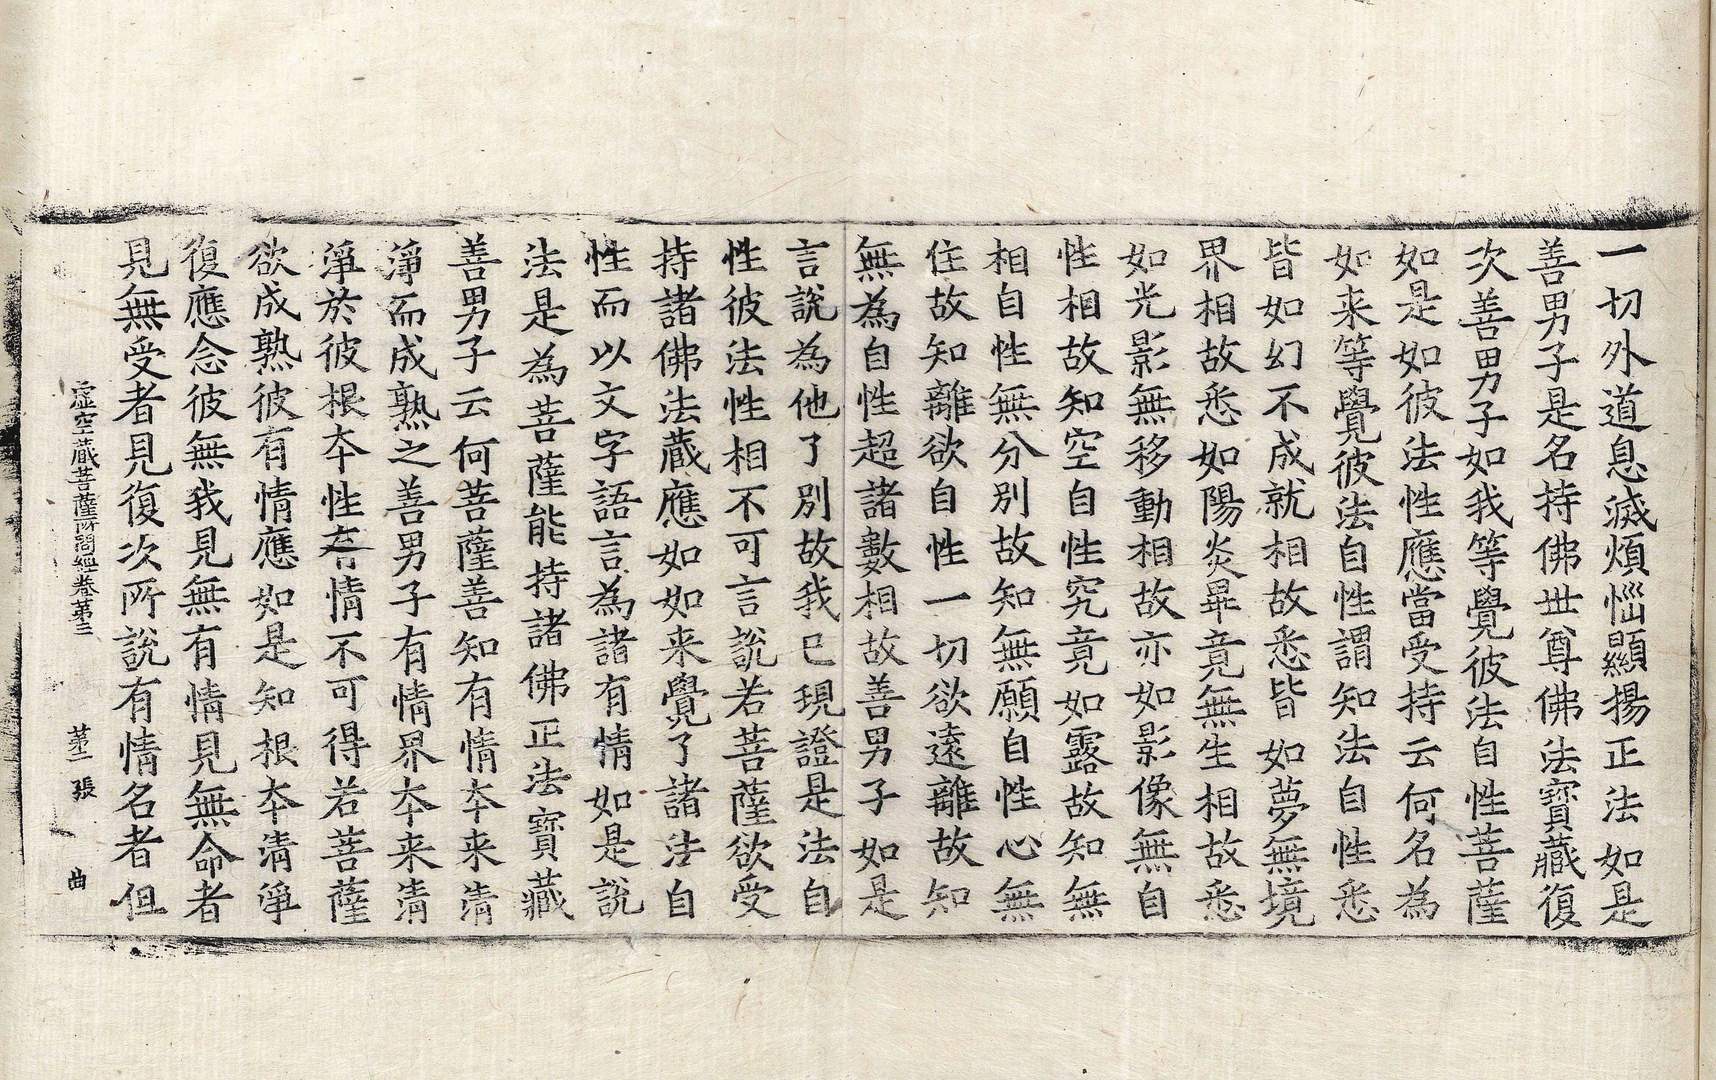 一切外道息滅煩惱顯揚正法如是
善男子是名持佛世尊佛法寶藏復
次善男子如我等覺彼法自性菩薩
如是如彼法性應當受持云何名為
如来等覺彼法自性謂知法自性悉
皆如幻不成就相故悉皆如夢無境
界相故悉如陽炎畢竟無生相故悉
如光影無移動相故亦如影像無自
性相故知空自性究竟如露故知無
相自性無分別故知無願自性心無
住故知離欲自性一切欲遠離故知
無為自性超諸數相故善男子如是
言說為他了別故我已現證是法自
性彼法性相不可言說若菩薩欲受
持諸佛法藏應如如来覺了諸法自
性而以文字語言為諸有情如是說
法是為菩薩能持諸佛正法寶藏
善男子云何菩薩善知有情本来清
淨而成熟之善男子有情界本来清
淨於彼根本性有情不可得若菩薩
欲成熟彼有情應如是知根本清淨
復應念彼無我見無有情見無命者
見無受者見復次所說有情名者但
虛空藏菩薩所問經卷第三 第二張 曲